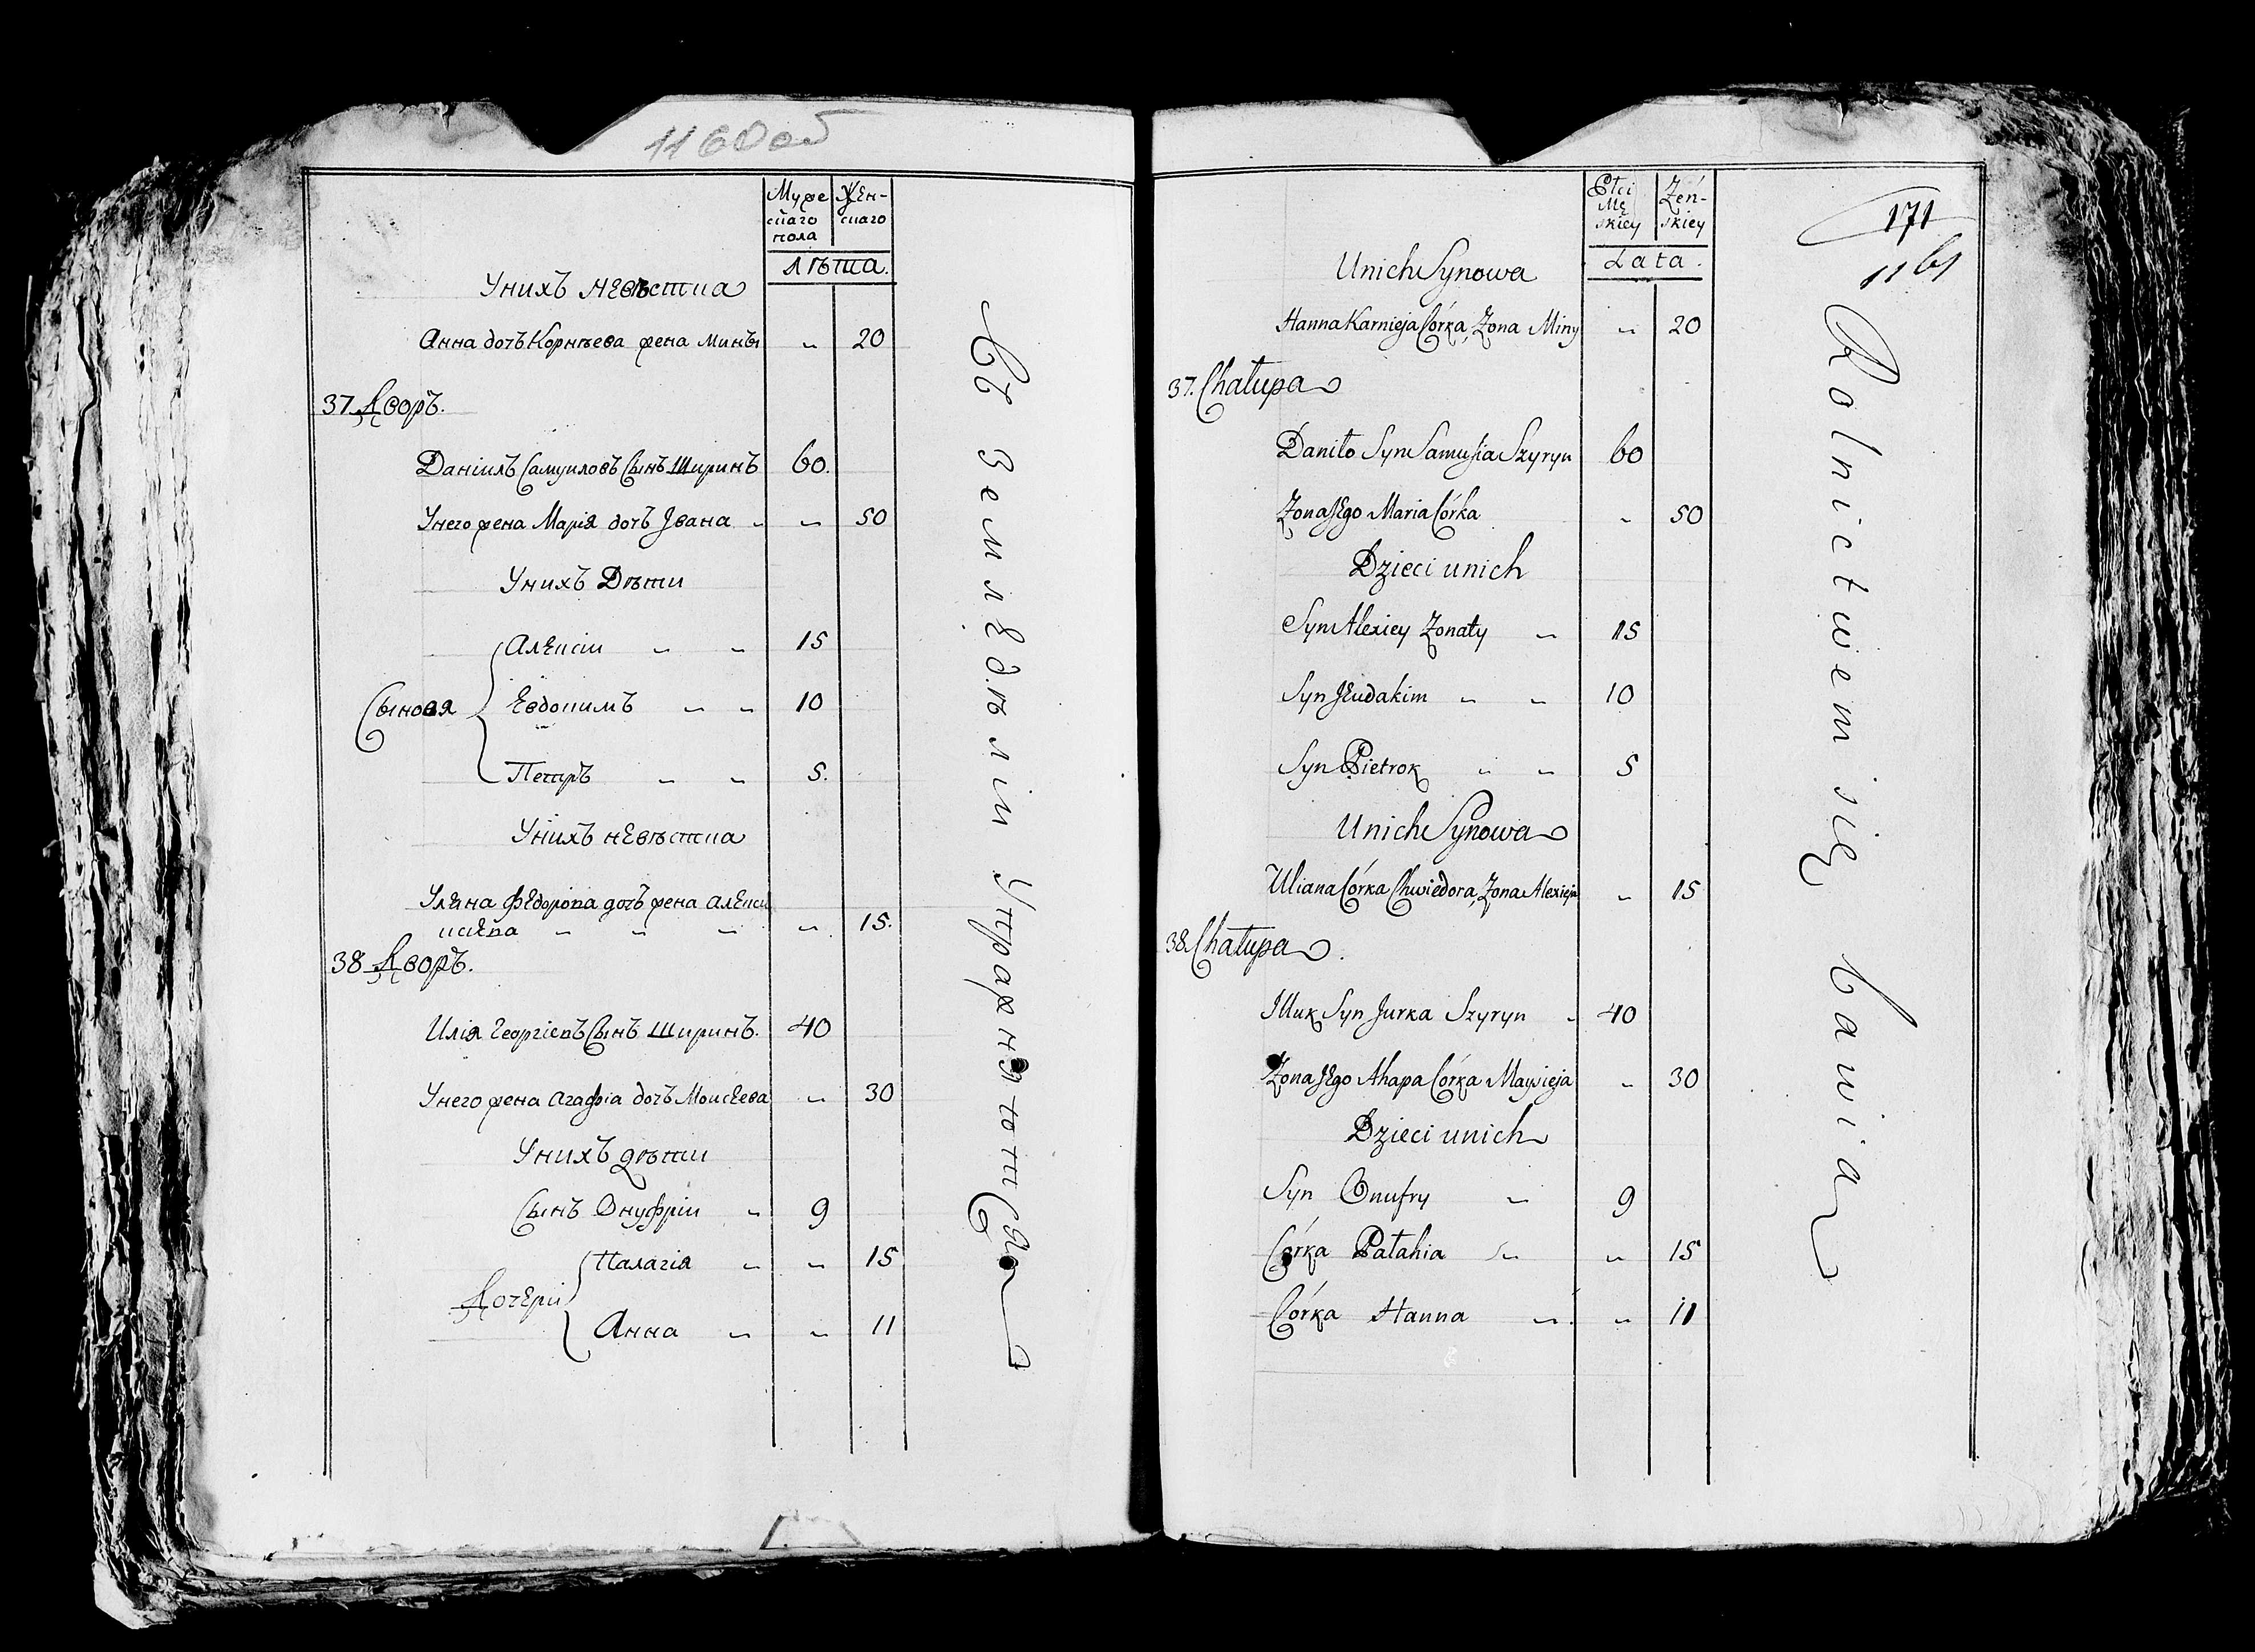 1160об
Муже Жен-
скаго скаго
пола
лѣта.
Унихъ невѣстка
Анна дочь Корнѣева жена Мины " 20
37. Дворъ.
Даніилъ Самуиловъ Сынъ Ширинъ 60.
Унего жена Марія дочь Ивана " " 50
Унихъ Дѣти
Алексіи " " 15
Сыновя Евдокимъ " " 10
Петръ " " 5.
Унихъ невѣстка
Уляна Федорова дочь жена Алекси
ксѣева " " " " 15.
38 Дворъ.
Илія Георгіевъ Сынъ Ширинъ. 40
Унего жена Агафія дочь Моисеева " 30
Унихъ дѣти
Сынъ Онуфріи " 9
Палагія " " 15
Дочери
Анна " " 11
Въ Земледѣліи Упражняются
Płci Żeń-
Mę skiey
skiey
Lata.
171
1161
Unich Synowa
Hanna Karnieja Córka, Żona Miny " 20
37. Chałupa
Daniło Syn Samusia Szyryn 60
Żona Jego Maria Córka " 50
Dzieci unich
Syn Alexiey Żonaty " 15
Syn Jeudakim " " 10
Syn Pietrok " " 5
Unich Synowa
Uliana Córka Chwiedora, Żona Alexieja " 15
38. Chałupa.
Illuk Syn Jurka Szyryn " 40
Żona Jego Ahapa Córka Maysieja " 30
Dzieci unich
Syn Onufry " 9
Córka Pałahia " " 15
Córka Hanna " " 11
Rolnictwem się bawia